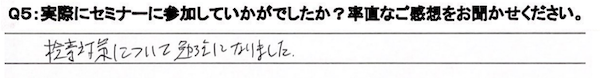 Q5:実際にセミナーに参加していかがでしたか？率直なご感想をお聞かせください。
検索対策について勉強になりました.